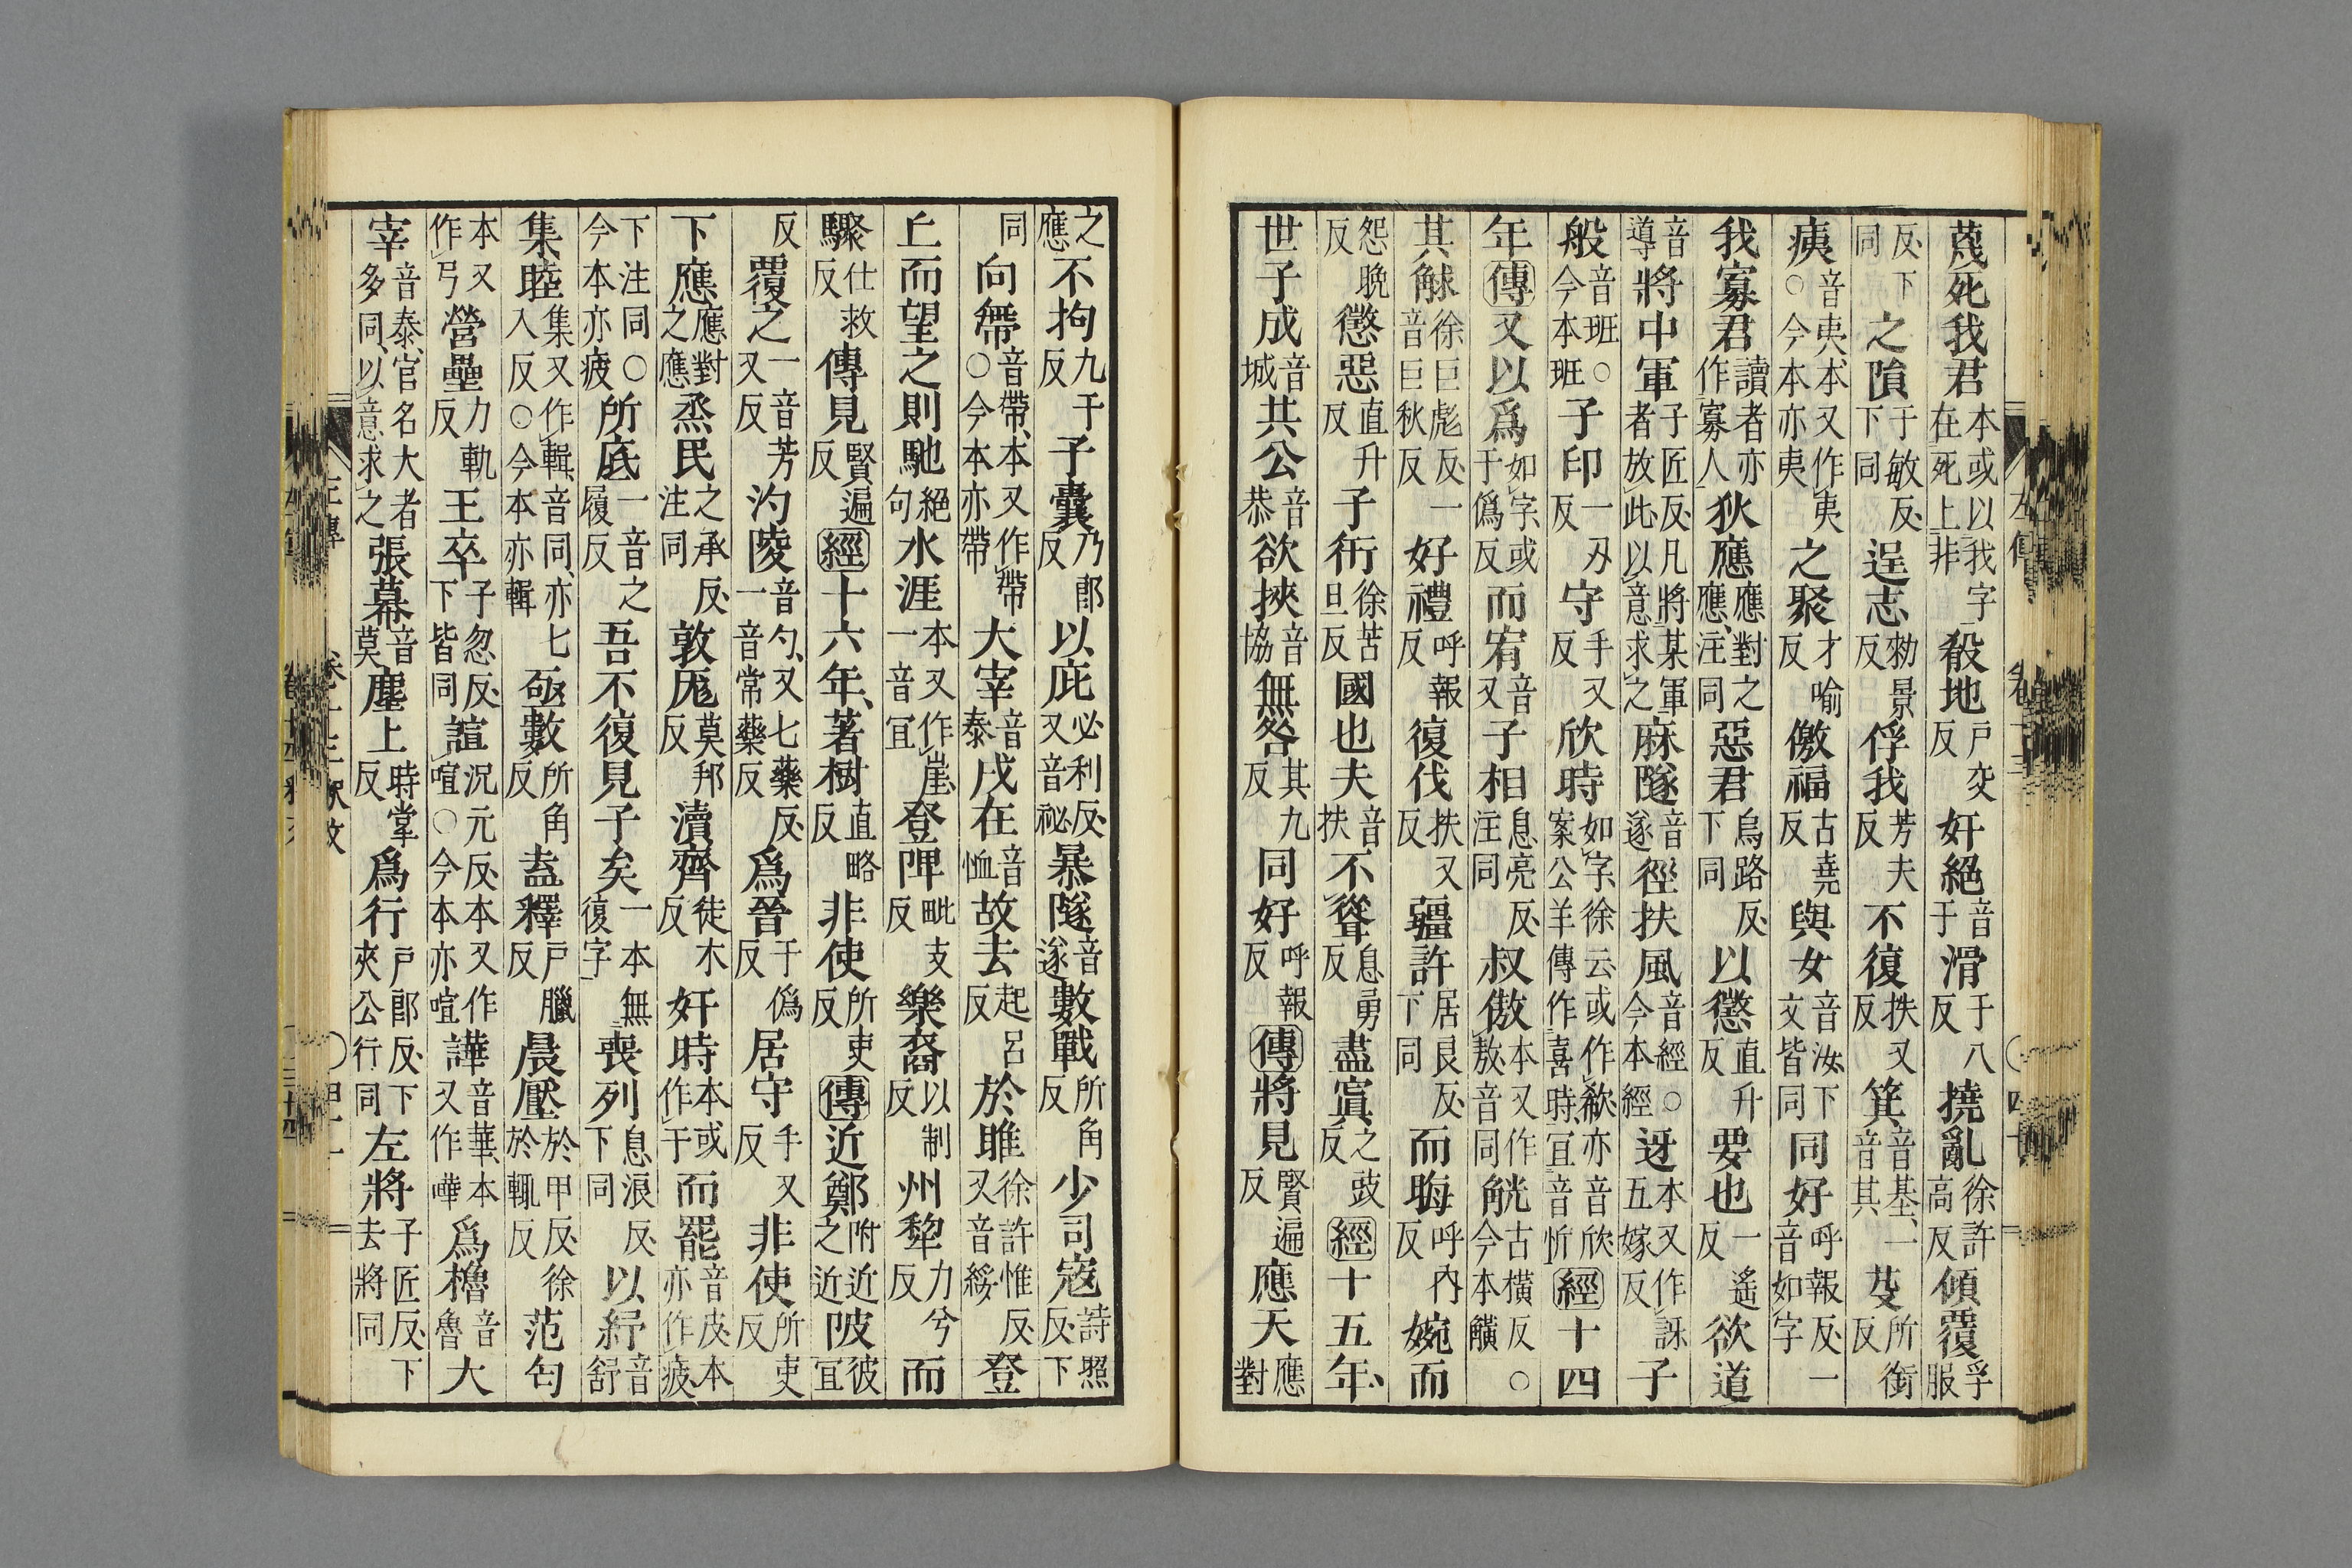 蔑死我君本或以我字在死上非殽地戸交反奸絕音于滑于八反撓亂徐許高反傾覆孚服
反下同之隕于敏反下同逞志勑景反俘我芳夫反不復扶又反箕音基一音其芟所銜反
痍音夷本又作夷○今本亦夷之聚才喻反儌福古堯反與女音汝下文皆同同好呼報反一音如字
我寡君讀者亦作寡人狄應應對之應注同惡君烏路反下同以懲直升反要也一遙反欲道
音導將中軍子匠反凡將某軍者放此以意求之麻隧音遂徑扶風音經○今本經迓本又作訝五嫁反子
般音班○今本班子印一刃反守手又反欣時如字徐云或作欷亦音欣案公羊傳作喜時宜音忻經十四
年傳又以爲如字或于僞反而宥音又子相息亮反注同叔傲本又作敖音同觥古橫反○今本觵
其觩徐巨彪反一音巨秋反好禮呼報反復伐扶又反疆許居艮反下同而晦呼內反婉而
怨晚反懲惡直升反子衎徐苦旦反國也夫音扶不聳息勇反盡寘之豉反經十五年
世子成音城共公音恭欲挾音協無咎其九反同好呼報反傳將見賢遍反應天應對
之應不拘九于反子囊乃郎反以庇必利反又音祕暴隧音遂數戰所角反少司寇詩照反下
同向帶音帶本又作帶○今本亦帶大宰音泰戌在音恤故去起呂反於睢徐許惟反又音綏登
丘而望之則馳絕句水涯本又作崖一音宜登陴毗支反樂裔以制反州犂力兮反而
驟仕救反傳見賢遍反經十六年著樹直略反非使所吏反傳近鄭附近之近陂彼宜
反覆之一音芳又反汋陵音勺又七藥反一音常藥反爲晉于僞反居守手又反非使所吏反
下應應對之應烝民之承反注同敦厖莫邦反瀆齊徒木反奸時本或作于而罷音皮本亦作疲
下注同○今本亦疲所底一音之履反吾不復見子矣一本無復字喪列息浪反下同以紓音舒
集睦集又作輯音同亦七入反○今本亦輯亟數所角反盍釋戸臘反晨壓於甲反徐於輒反范匄
本又作丐營壘力軌反王卒子忽反下皆同諠況元反本又作喧○今本亦喧譁音華本又作嘩爲櫓音魯大
宰音泰官名大者多同以意求之張幕音莫塵上時掌反爲行戸郎反下夾公行同左將子匠反下去將同